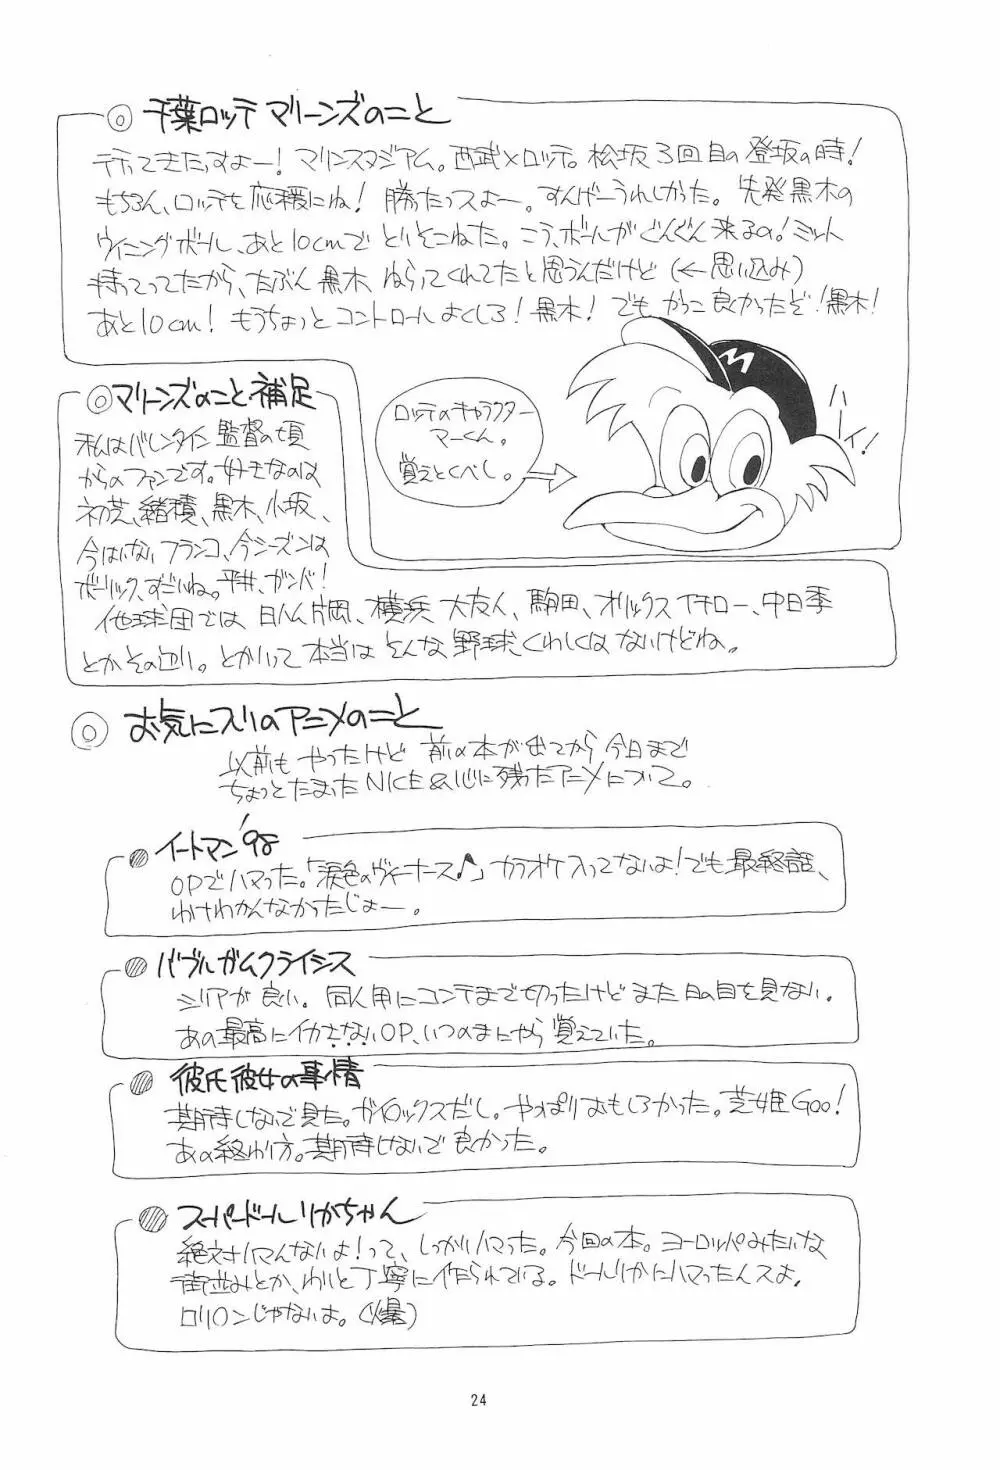 ◎ 千葉ロッテマリーンズのこと
行ってきたっすよー！マリンスタジアム。西武×ロッテ。松坂3回目の登坂の時！
もちろん、ロッテを応援にね！勝たっスよー。すんげーうれしかった。先発黒木の
ウィニングボール、あと10cmでとりそこねた。こう、ボールがぐんぐん来るの！ミット
持ってってたから、たぶん黒木ねらってくれてたと思うんだけど（←思い込み）
あと10cm！もうちょっとコントロールよくしろ！黒木！でもかっこ良かったぞ！黒木！
◎マリーンズのこと補足
私はバレンタイン監督の頃
からのファンです。好きなのは
初芝、緒積、黒木、小坂、
今はいないフランコ、今シーズンは
ボーリック、すごいね。平井、ガンバ！
他球団では日ハム片岡、横浜大友人、駒田、オリックスイチロー、中日季
とかその辺り。とかいって本当はそんな野球くわしくはないけどね。
ロッテのキャラクター
マーくん。
覚えとくべし。
M
ハーイ！
◎ お気に入りのアニメのこと
以前もやったけど前の本が出てから今日まで
ちょっとたまったNICE&心に残ったアニメについて。
イートマン'98
OPでハマった。「涙色のヴィーナス♪」カラオケ入ってないよ！でも最終話、
わけわかんなかったじょー。
バブルガムクライシス
シリアが良い。同人用にコンテまで切ったけどまだ日の目を見ない。
あの最高にイカさないOP、いつのまにやら覚えていた。
彼氏彼女の事情
期待しないで見た。ガイロックスだし。やっぱりおもしろかった。芝姫Goo！
あの終わり方。期待しないで良かった。
スーパードールリカちゃん
絶対ハマんないよ！って、しっかりハマった。今回の本。ヨーロッパみたいな
街並みとか、わりと丁寧に作られている。ドールリカにハマったんスよ。
ロリ○ンじゃないよ。（爆）
24